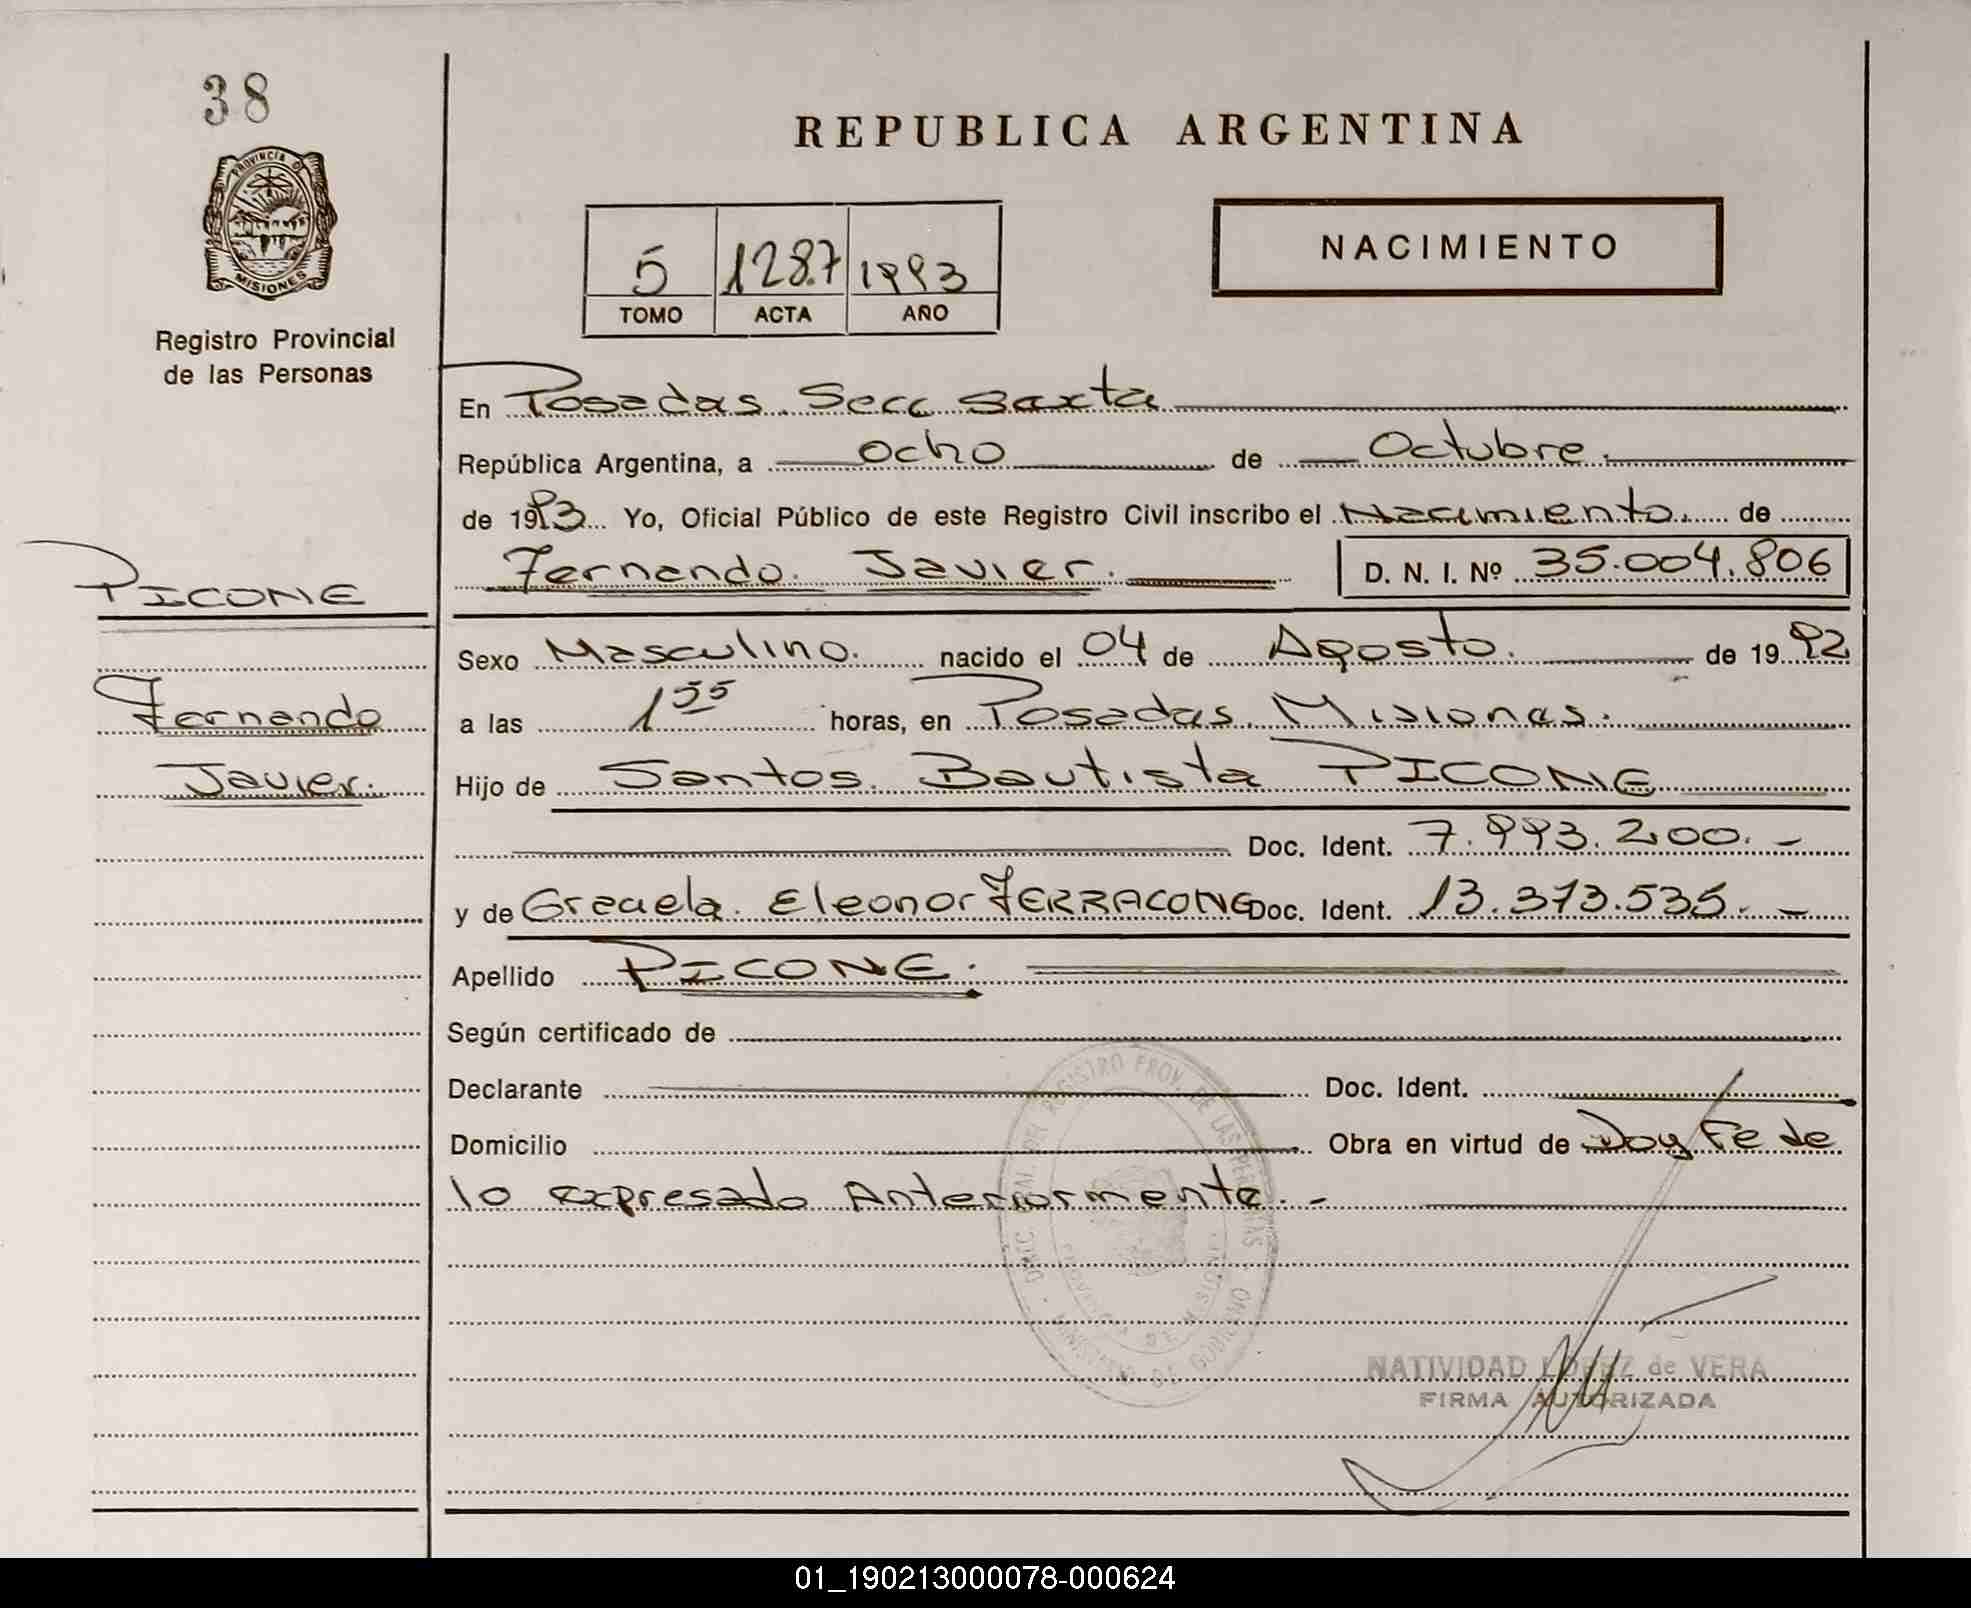 38
PROVINCIA D
MISIONES
Registro Provincial
de las Personas
REPUBLICA ARGENTINA
5 1287 1993
TOMO ACTA AÑO
NACIMIENTO
En Posadas. Secc Sexta
República Argentina, a ocho de Octubre.
de 1993 Yo, Oficial Público de este Registro Civil inscribo el Nacimiento. de
Fernando. Javier. D. N. I. Nº 35.004.806
PICONE
Fernando
Javier.
Sexo Masculino. nacido el 04 de Agosto. de 1992
a las 1 55 horas, en Posadas. Misiones.
Hijo de Santos. Bautista PICONE
Doc. Ident. 7.993.200.-
y de Graciela. Eleonor FERRACONE Doc. Ident. 13.373.535.-
Apellido PICONE.
Según certificado de
Declarante Doc. Ident.
Domicilio Obra en virtud de Doy Fe de
lo expresado Anteriormente.-
REGISTRO PROV. DE LAS PERSONAS
MINISTERIO DE GOBIERNO
PROVINCIA DE MISIONES
NATIVIDAD LOPEZ de VERA
FIRMA AUTORIZADA
01_190213000078-000624